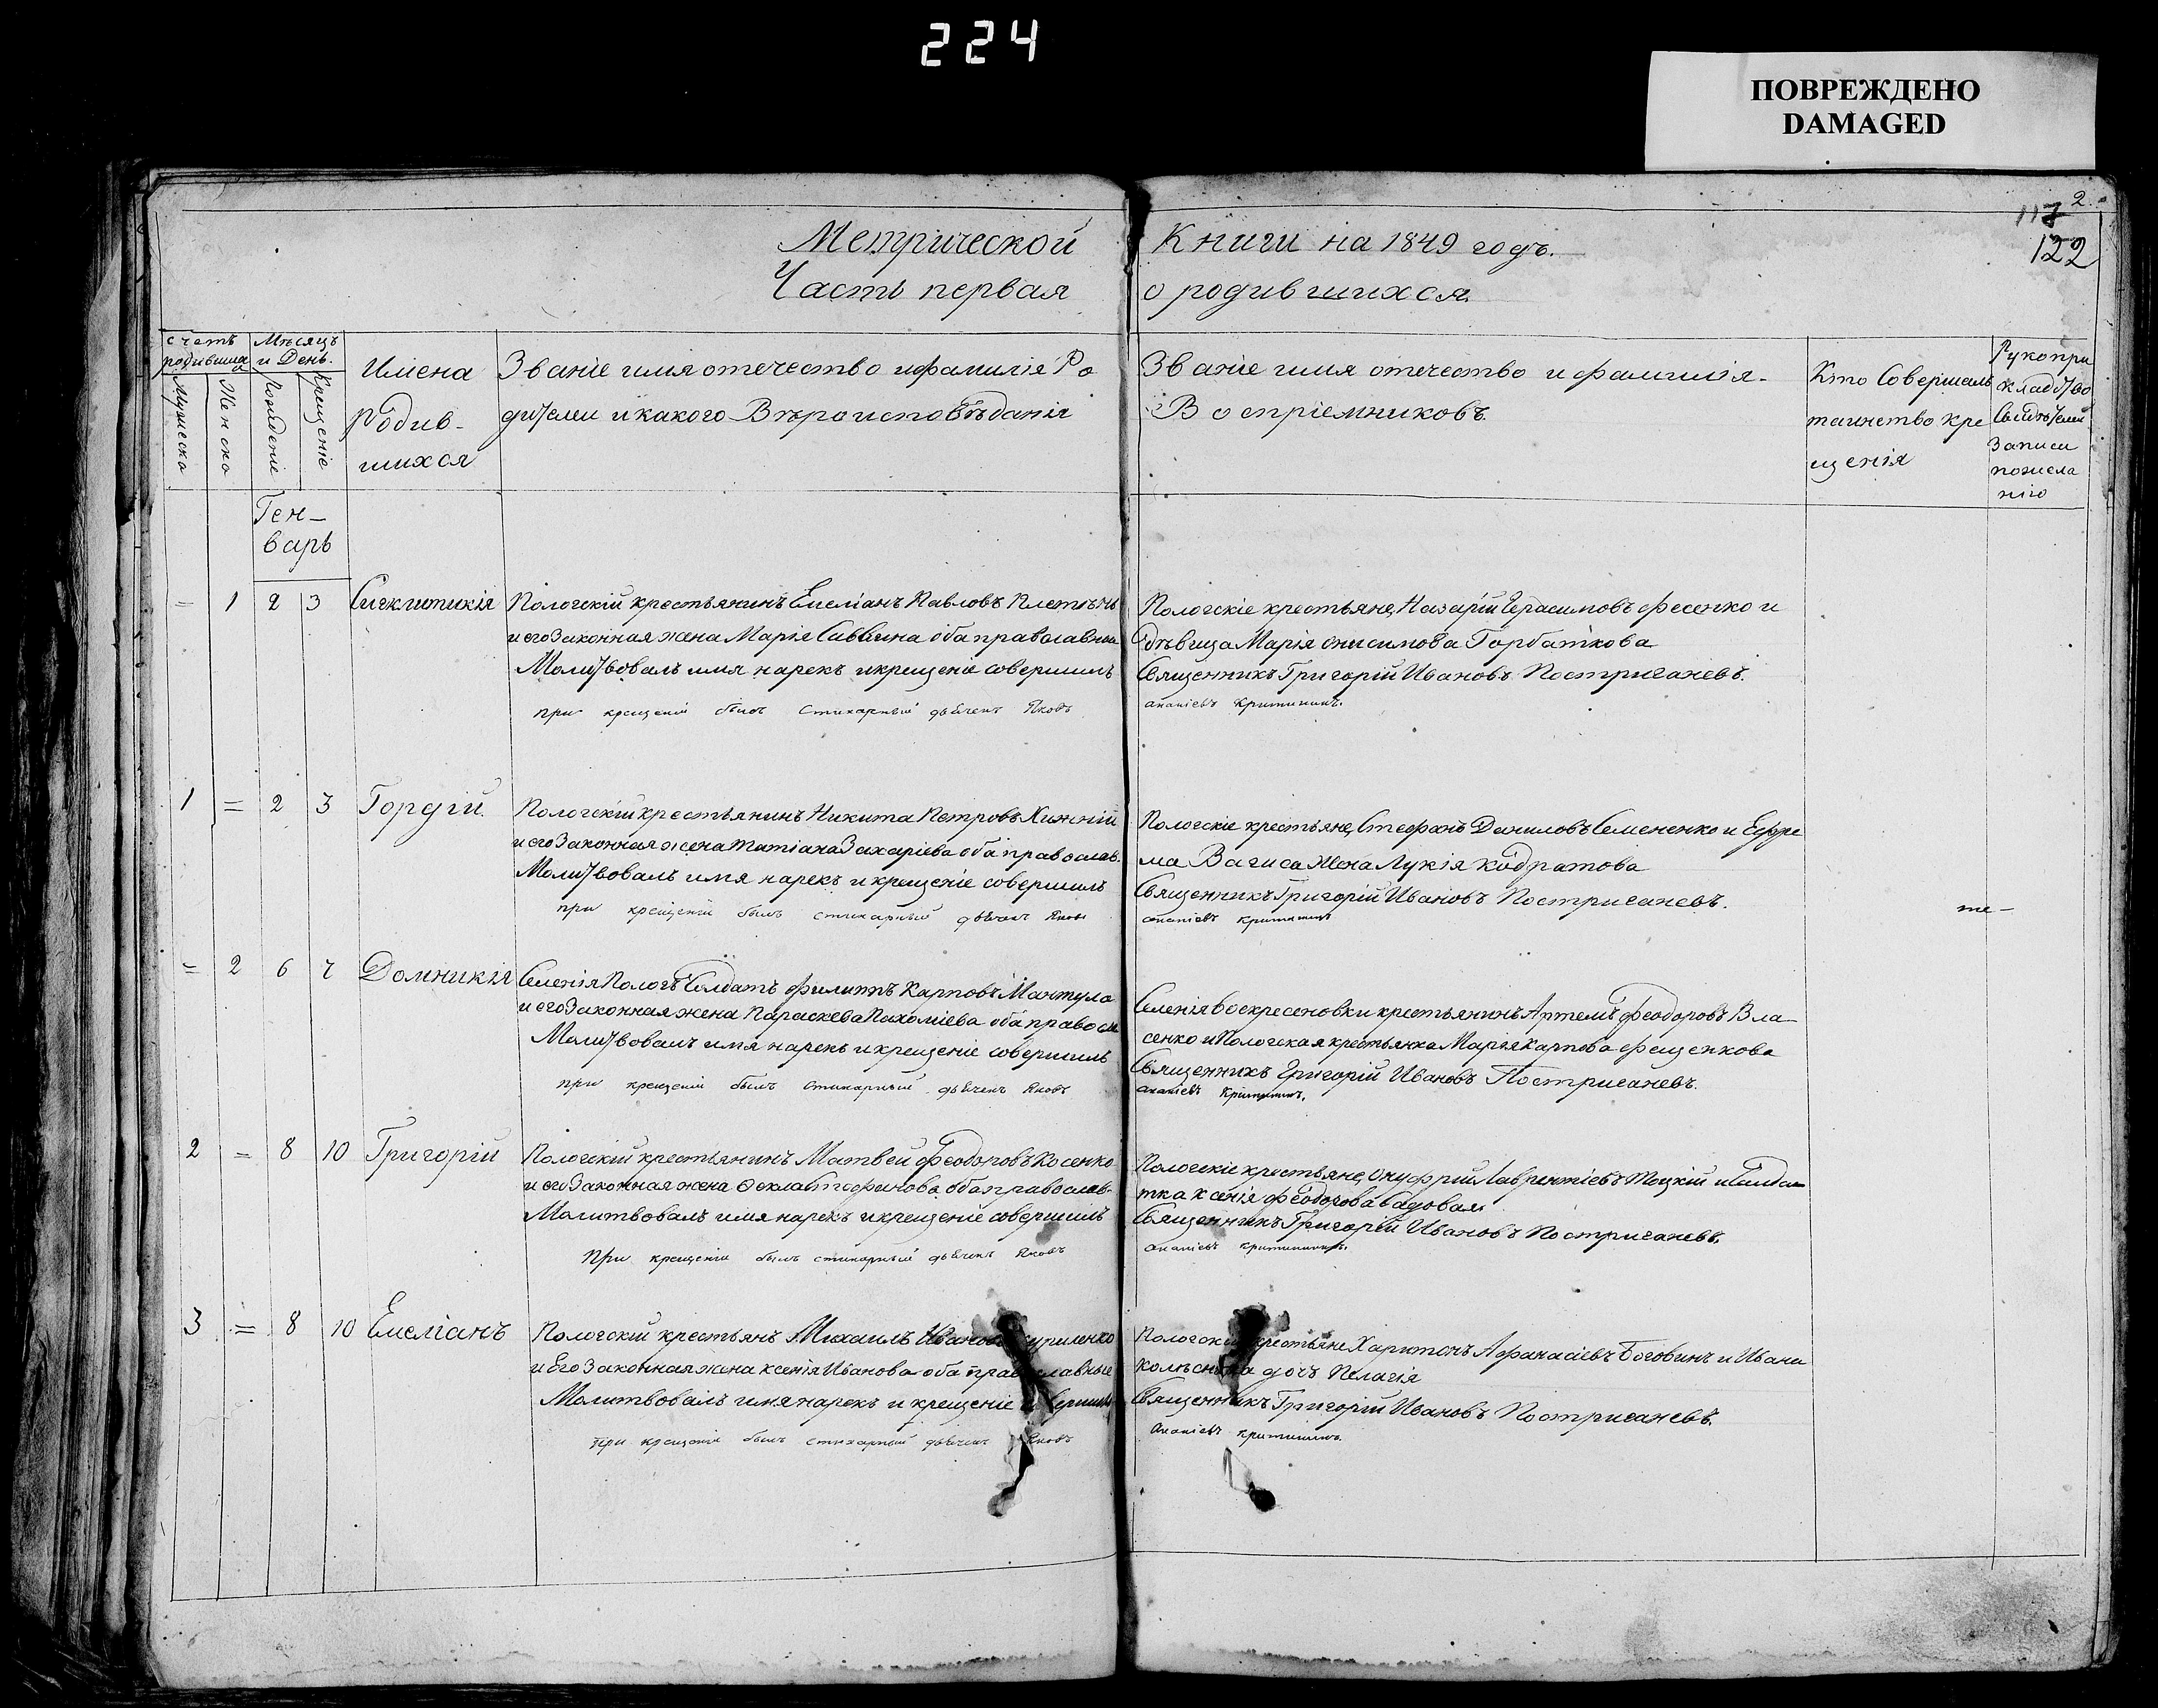 224
ПОВРЕЖДЕНО
DAMAGED
2.
117
122
Метрической Книги на 1849 годъ.
Часть первая о родившихся.
счетъ родившихся
Мужеска
Женска
Мѣсяцъ и День.
Рожденіе
Крещеніе
Имена
Родив-
шихся
Званіе имя отечество и фамилія Ро
дителей и какого Вѣроисповѣданія
Званіе имя отечество и фамилія
Воспріемниковъ.
Кто Совершалъ
таинство кре
щенія
Рукопри
кладство
Свидѣтелей
Записи
пожела
нію
Ген-
варь
= 1 2 3 Сигклитикія
Пологскій крестьянинъ Емеліанъ Павловъ Плетѣнь
и его Законная жена Марія Саввина оба православны
Молитвовалъ имя нарекъ и крещеніе совершилъ
при крещеніи былъ стихарный дьячекъ Яковъ
Пологскіе крестьяне, Назарій Герасимовъ Фесенко и
дѣвица Марія Онисимова Горбаткова
Священникъ Григорій Ивановъ Постригачевъ.
ананіевъ Критининъ.
1 = 2 3 Гордій.
Пологскій крестьянинъ Никита Петровъ Хижній
и его Законная жена Татіана Захаріева оба православ.
Молитвовалъ имя нарекъ и крещеніе совершилъ
при крещеніи былъ стихарный дьячекъ Яковъ
Пологскіе крестьяне, Стефанъ Даниловъ Семененко и Ефре
ма Вагиса Жена Лукія Кодратова
Священникъ Григорій Ивановъ Постригачевъ.
ананіевъ Критининъ
те-
= 2 6 7 Домникія
Селенія Пологъ Солдатъ Филиппъ Карповъ Мантула
и его Законная жена Параскева Пахоміева оба правосл
Молитвовалъ имя нарекъ и крещеніе совершилъ
при крещеніи былъ стихарный дьячекъ Яковъ
Селенія Воскресеновки крестьянинъ Артемъ Феодоровъ Вла-
сенко и Пологская крестьянка Марія Карпова Фещенкова
Священникъ Григорій Ивановъ Постригачевъ.
ананіевъ Критининъ.
2 = 8 10 Григорій
Пологскій крестьянинъ Матвей Феодоровъ Косенко
и его Законная жена Ѳекла Стефанова оба православ.
Молитвовалъ имя нарекъ и крещеніе совершилъ
При крещеніи былъ стихарный дьячекъ Яковъ
Пологскіе крестьяне, Онуфрій Лаврентіевъ Тоцкій и Солда
тка Ксенія Феодорова Садовая
Священникъ Григорій Ивановъ Постригачевъ.
ананіевъ Критининъ.
3 = 8 10 Емеліанъ
Пологскій крестьянъ Михаилъ Ивановъ Куриленко
и Его Законная жена Ксенія Иванова оба православные
Молитвовалъ имя нарекъ и крещеніе совершилъ
при крещеніи былъ стихарный дьячекъ Яковъ
Пологскіе крестьяне Харитонъ Афанасіевъ Боговинъ и Ивана
колѣсника дочь Пелагія
Священникъ Григорій Ивановъ Постригачевъ.
Ананіевъ Критининъ.